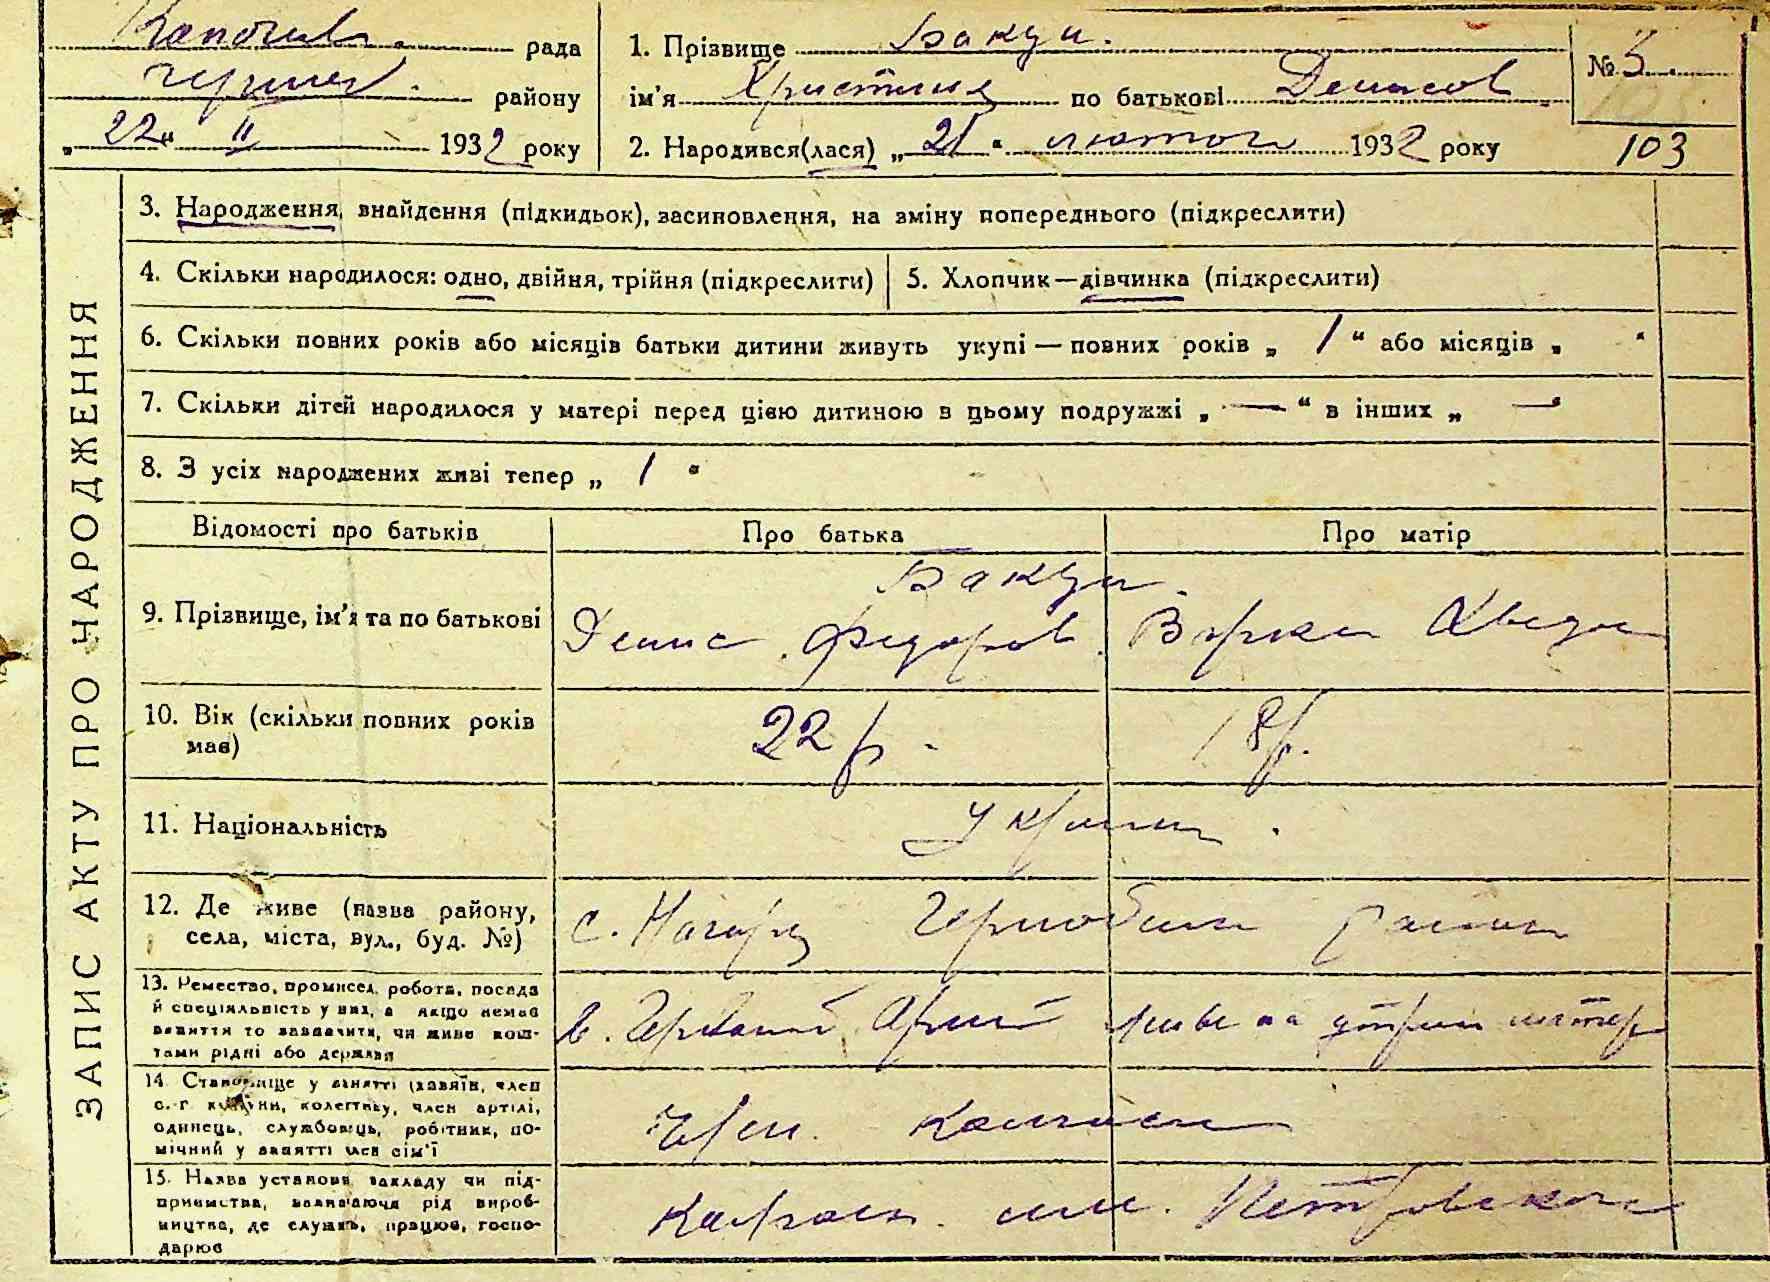 рада
району
„22“ II 1932 року
1. Прізвище Бакун.
ім'я Христина по батькові Денисов
2. Народився(лася) „21“ лютого 1932 року
№ 5
103
ЗАПИС АКТУ ПРО НАРОДЖЕННЯ
3. Народження, внайдення (підкидьок), засиновлення, на зміну попереднього (підкреслити)
4. Скільки народилося: одно, двійня, трійня (підкреслити)
5. Хлопчик—дівчинка (підкреслити)
6. Скільки повних років або місяців батьки дитини живуть укупі — повних років „ 1 “ або місяців „ “
7. Скільки дітей народилося у матері перед цією дитиною в цьому подружжі „ — “ в інших „ — “
8. З усіх народжених живі тепер „ 1 “
Відомості про батьків
Про батька
Про матір
9. Прізвище, ім'я та по батькові
Бакун.
Денис Федоров.
Варка
10. Вік (скільки повних років має)
22 р.
18 р.
11. Національність
Україн.
12. Де живе (назва району,
села, міста, вул., буд. №)
с. Нагірці Чорнобил району
13. Ремество, промисел, робота, посада
й спеціяльність у них, а якщо немає
заняття то зазначити, чи живе кош-
тами рідні або держави
в. Червоній Армії
живе на утрим матер
14. Становище у занятті (хазяїн, член
с.-г. комуни, колективу, член артілі,
одинець, службовець, робітник, по-
мічний у занятті член сім'ї
Член.
15. Назва установи, закладу чи під-
приємства, зазначаючи рід вироб-
ництва, де служить, працює, госпо-
дарює
им. Петровского